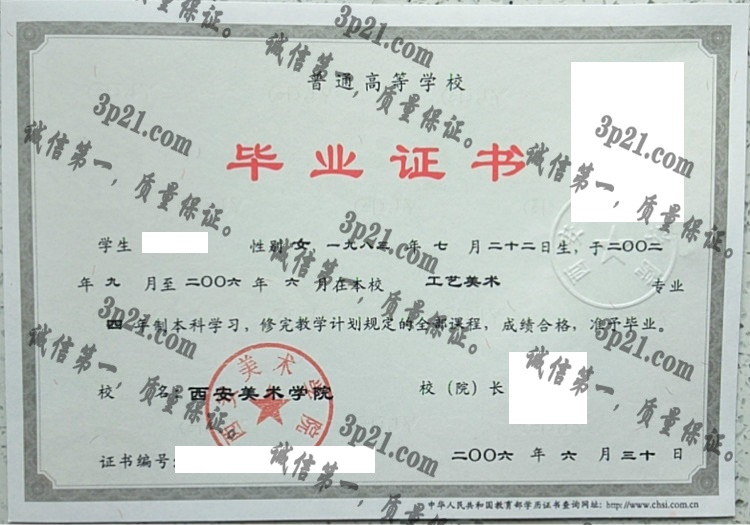 普通高等学校
毕业证书
学生 性别 女 一九八三 年 七 月 二十二日生，于二〇〇二
年 九 月至 二〇〇六 年 六 月在本校 工艺美术 专业
四 年制本科学习，修完教学计划规定的全部课程，成绩合格，准予毕业。
校 名：西安美术学院 校（院）长
西安美术学院
证书编号： 二〇〇六 年 六 月 三十 日
中华人民共和国教育部学历证书查询网址：http://www.chsi.com.cn
3p21.com
诚信第一，质量保证。
3p21.com
诚信第一，质量保证。
3p21.com
诚信第一，质量保证。
3p21.com
诚信第一，质量保证。
3p21.com
诚信第一，质量保证。
3p21.com
诚信第一，质量保证。
3p21.com
诚信第一，质量保证。
3p21.com
诚信第一，质量保证。